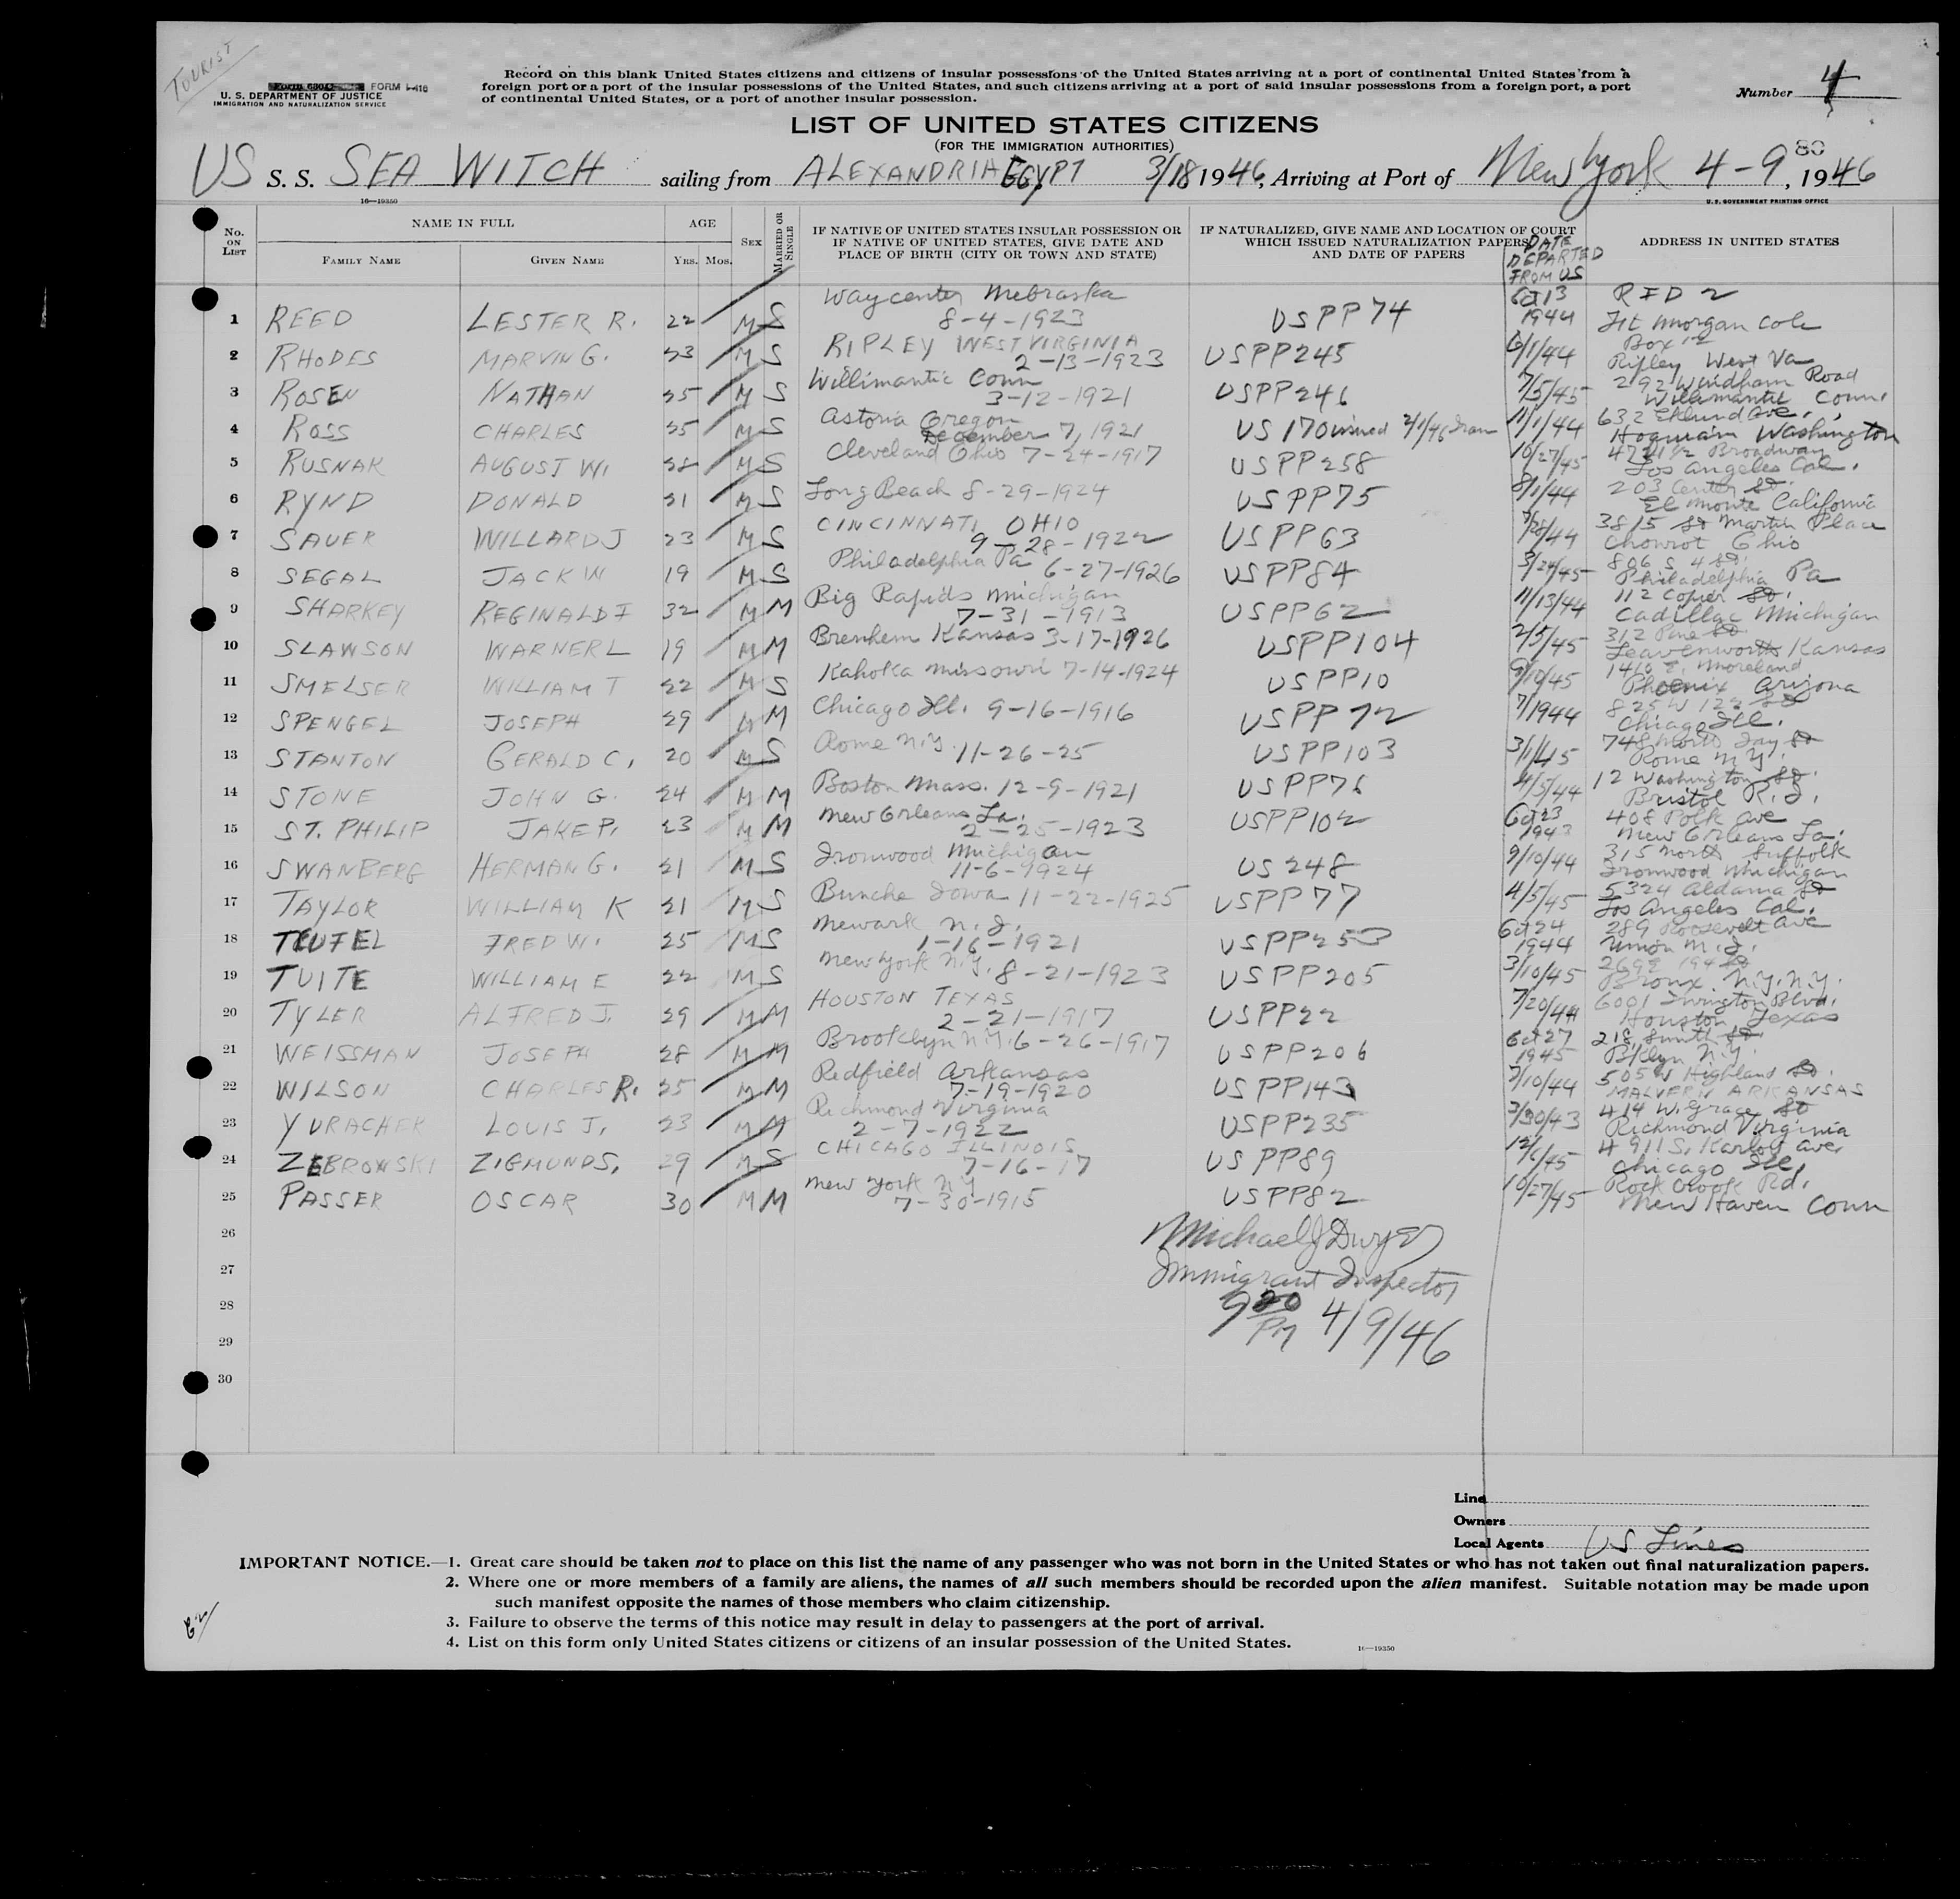 TOURIST
FORM I-418
U. S. DEPARTMENT OF JUSTICE
IMMIGRATION AND NATURALIZATION SERVICE
Record on this blank United States citizens and citizens of insular possessions of the United States arriving at a port of continental United States from a
foreign port or a port of the insular possessions of the United States, and such citizens arriving at a port of said insular possessions from a foreign port, a port
of continental United States, or a port of another insular possession.
Number 4
LIST OF UNITED STATES CITIZENS
(FOR THE IMMIGRATION AUTHORITIES)
80
US S. S. SEA WITCH sailing from ALEXANDRIA EGYPT 3/18 1946, Arriving at Port of New York 4-9, 1946
16—19350
U. S. GOVERNMENT PRINTING OFFICE
No. ON LIST NAME IN FULL FAMILY NAME GIVEN NAME AGE YRS. MOS. SEX MARRIED OR SINGLE IF NATIVE OF UNITED STATES INSULAR POSSESSION OR IF NATIVE OF UNITED STATES, GIVE DATE AND PLACE OF BIRTH (CITY OR TOWN AND STATE) IF NATURALIZED, GIVE NAME AND LOCATION OF COURT WHICH ISSUED NATURALIZATION PAPERS, AND DATE OF PAPERS DATE DEPARTED FROM US ADDRESS IN UNITED STATES
1 REED LESTER R. 22 M S Waycenter Nebraska 8-4-1923 USPP74 Oct 13 1944 RFD 2 Ft Morgan Colo
2 RHODES MARVIN G. 23 M S RIPLEY WEST VIRGINIA 2-13-1923 USPP245 6/1/44 Box 12 Ripley West Va
3 ROSEN NATHAN 25 M S Willimantic Conn 3-12-1921 USPP246 7/5/45 292 Windham Road Willimantic Conn.
4 ROSS CHARLES 25 M S Astoria Oregon December 7, 1921 US 170 issued 2/1/46 Iran 11/1/44 632 Eklund Ave. Hoquiam Washington
5 RUSNAK AUGUST W. 28 M S Cleveland Ohio 7-24-1917 USPP258 10/27/45 Broadway Los Angeles Cal.
6 RYND DONALD 21 M S Long Beach 8-29-1924 USPP75 8/1/44 203 Center St. El Monte California
7 SAUER WILLARD J 23 M S CINCINNATI OHIO 9-28-1922 USPP63 3815 St Martin Place Ohio
8 SEGAL JACK W 19 M S Philadelphia Pa 6-27-1926 USPP84 3/24/45 806 S 4 St. Philadelphia Pa
9 SHARKEY REGINALD I 32 M M Big Rapids Michigan 7-31-1913 USPP62 11/13/44 112 St. Cadillac Michigan
10 SLAWSON WARNER L 19 M M Brenhem Kansas 3-17-1926 USPP104 2/5/45 312 Pine St Leavenworth Kansas
11 SMELSER WILLIAM T 22 M S Kahoka Missouri 7-14-1924 USPP10 9/10/45 1410 E. Moreland Phoenix Arizona
12 SPENGEL JOSEPH 29 M M Chicago Ill. 9-16-1916 USPP72 7/1944 825 W 122 St Chicago Ill.
13 STANTON GERALD C. 20 M S Rome N.Y. 11-26-25 USPP103 3/1/45 748 North Jay St Rome N.Y.
14 STONE JOHN G. 24 M M Boston Mass. 12-9-1921 USPP76 4/5/44 12 Washington St. Bristol R.I.
15 ST. PHILIP JAKE P. 23 M M New Orleans La. 2-25-1923 USPP102 Oct 23 1943 408 Polk Ave New Orleans La.
16 SWANBERG HERMAN G. 21 M S Ironwood Michigan 11-6-1924 US 248 9/10/44 315 North Suffolk Ironwood Michigan
17 TAYLOR WILLIAM K 21 M S Iowa 11-22-1925 USPP77 4/5/45 5324 Aldama St Los Angeles Cal.
18 TEUFEL FRED W. 25 M S Newark N.J. 1-16-1921 USPP253 Oct 24 1944 289 Roosevelt Ave Union N.J.
19 TUITE WILLIAM E 22 M S New York N.Y. 8-21-1923 USPP205 3/10/45 269 E 194 St Bronx N.Y. N.Y.
20 TYLER ALFRED J. 29 M M HOUSTON TEXAS 2-21-1917 USPP22 7/20/44 6001 Irvington Blvd. Houston Texas
21 WEISSMAN JOSEPH 28 M M Brooklyn N.Y. 6-26-1917 USPP206 Oct 27 1945 218 Smith St. Bklyn N.Y.
22 WILSON CHARLES R. 25 M M Redfield Arkansas 7-19-1920 USPP143 505 W Highland St. MALVERN ARKANSAS
23 YURACHEK LOUIS J. 23 M M Richmond Virginia 2-7-1922 USPP235 3/30/43 414 W. Grace St Richmond Virginia
24 ZEBROWSKI ZIGMUND S. 29 M S CHICAGO ILLINOIS 7-16-17 USPP89 12/6/45 4911 S. Karlov Ave. Chicago Ill.
25 PASSER OSCAR 30 M M New York NY 7-30-1915 USPP82 10/27/45 Rock Rd. New Haven Conn
26
27
28
29
30
Michael J Dwyer
Immigrant Inspector
9 20 PM 4/9/46
Line
Owners
Local Agents US Lines
IMPORTANT NOTICE.—1. Great care should be taken not to place on this list the name of any passenger who was not born in the United States or who has not taken out final naturalization papers.
2. Where one or more members of a family are aliens, the names of all such members should be recorded upon the alien manifest. Suitable notation may be made upon
such manifest opposite the names of those members who claim citizenship.
3. Failure to observe the terms of this notice may result in delay to passengers at the port of arrival.
4. List on this form only United States citizens or citizens of an insular possession of the United States.
16—19350